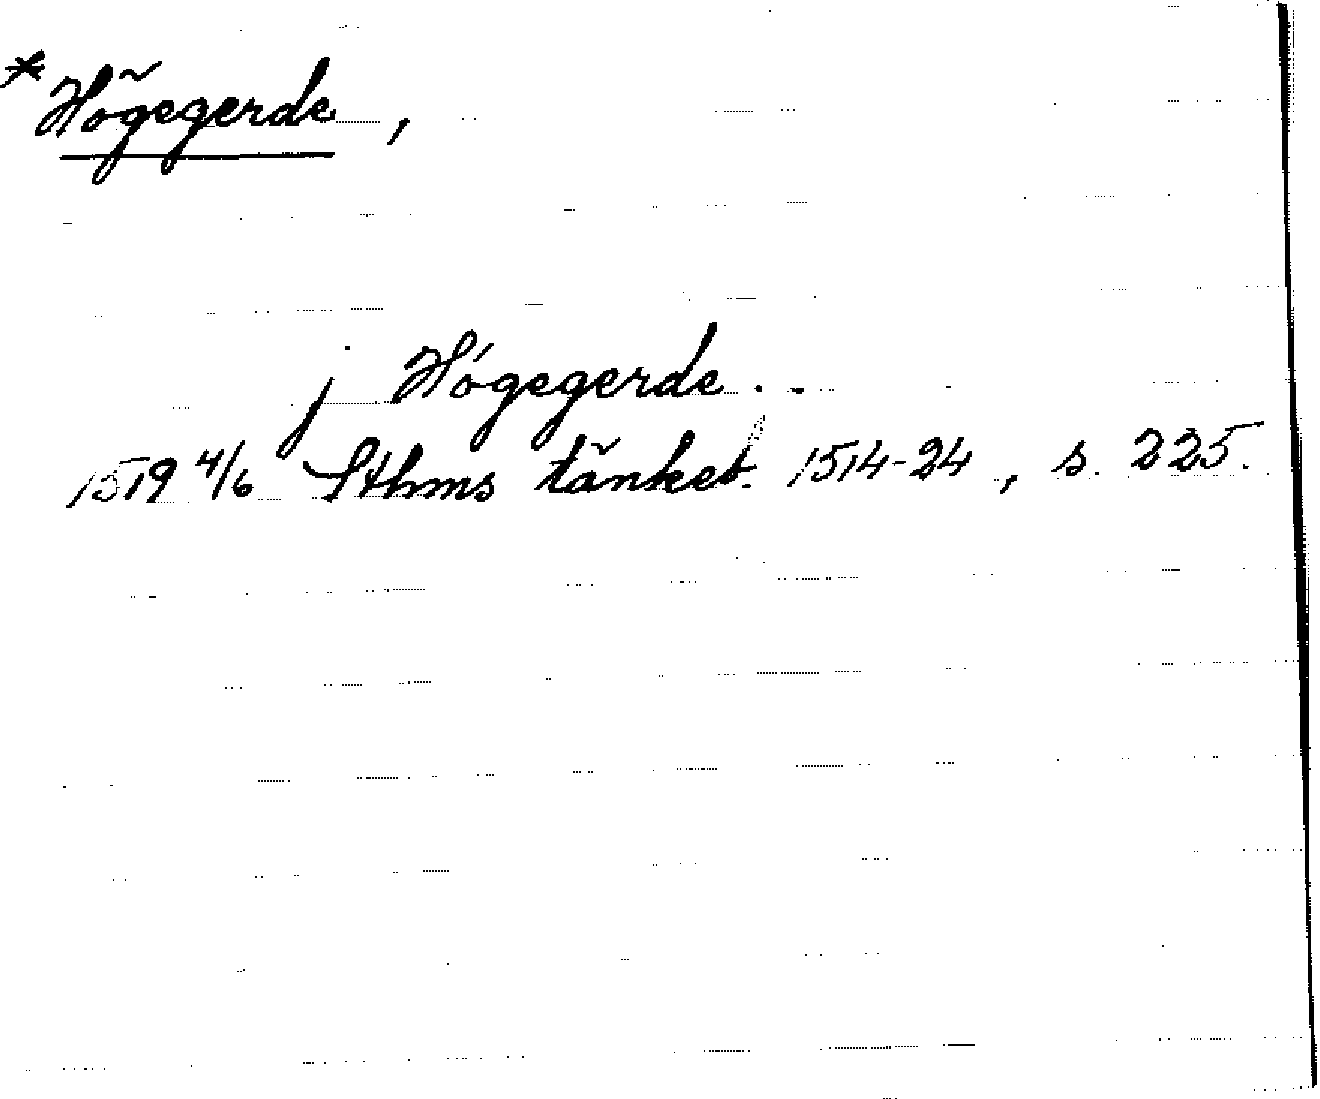 *Högegerde,
j Högegerde..
1519 4/6 Sthms tänkeb. 1514-24, s. 225.